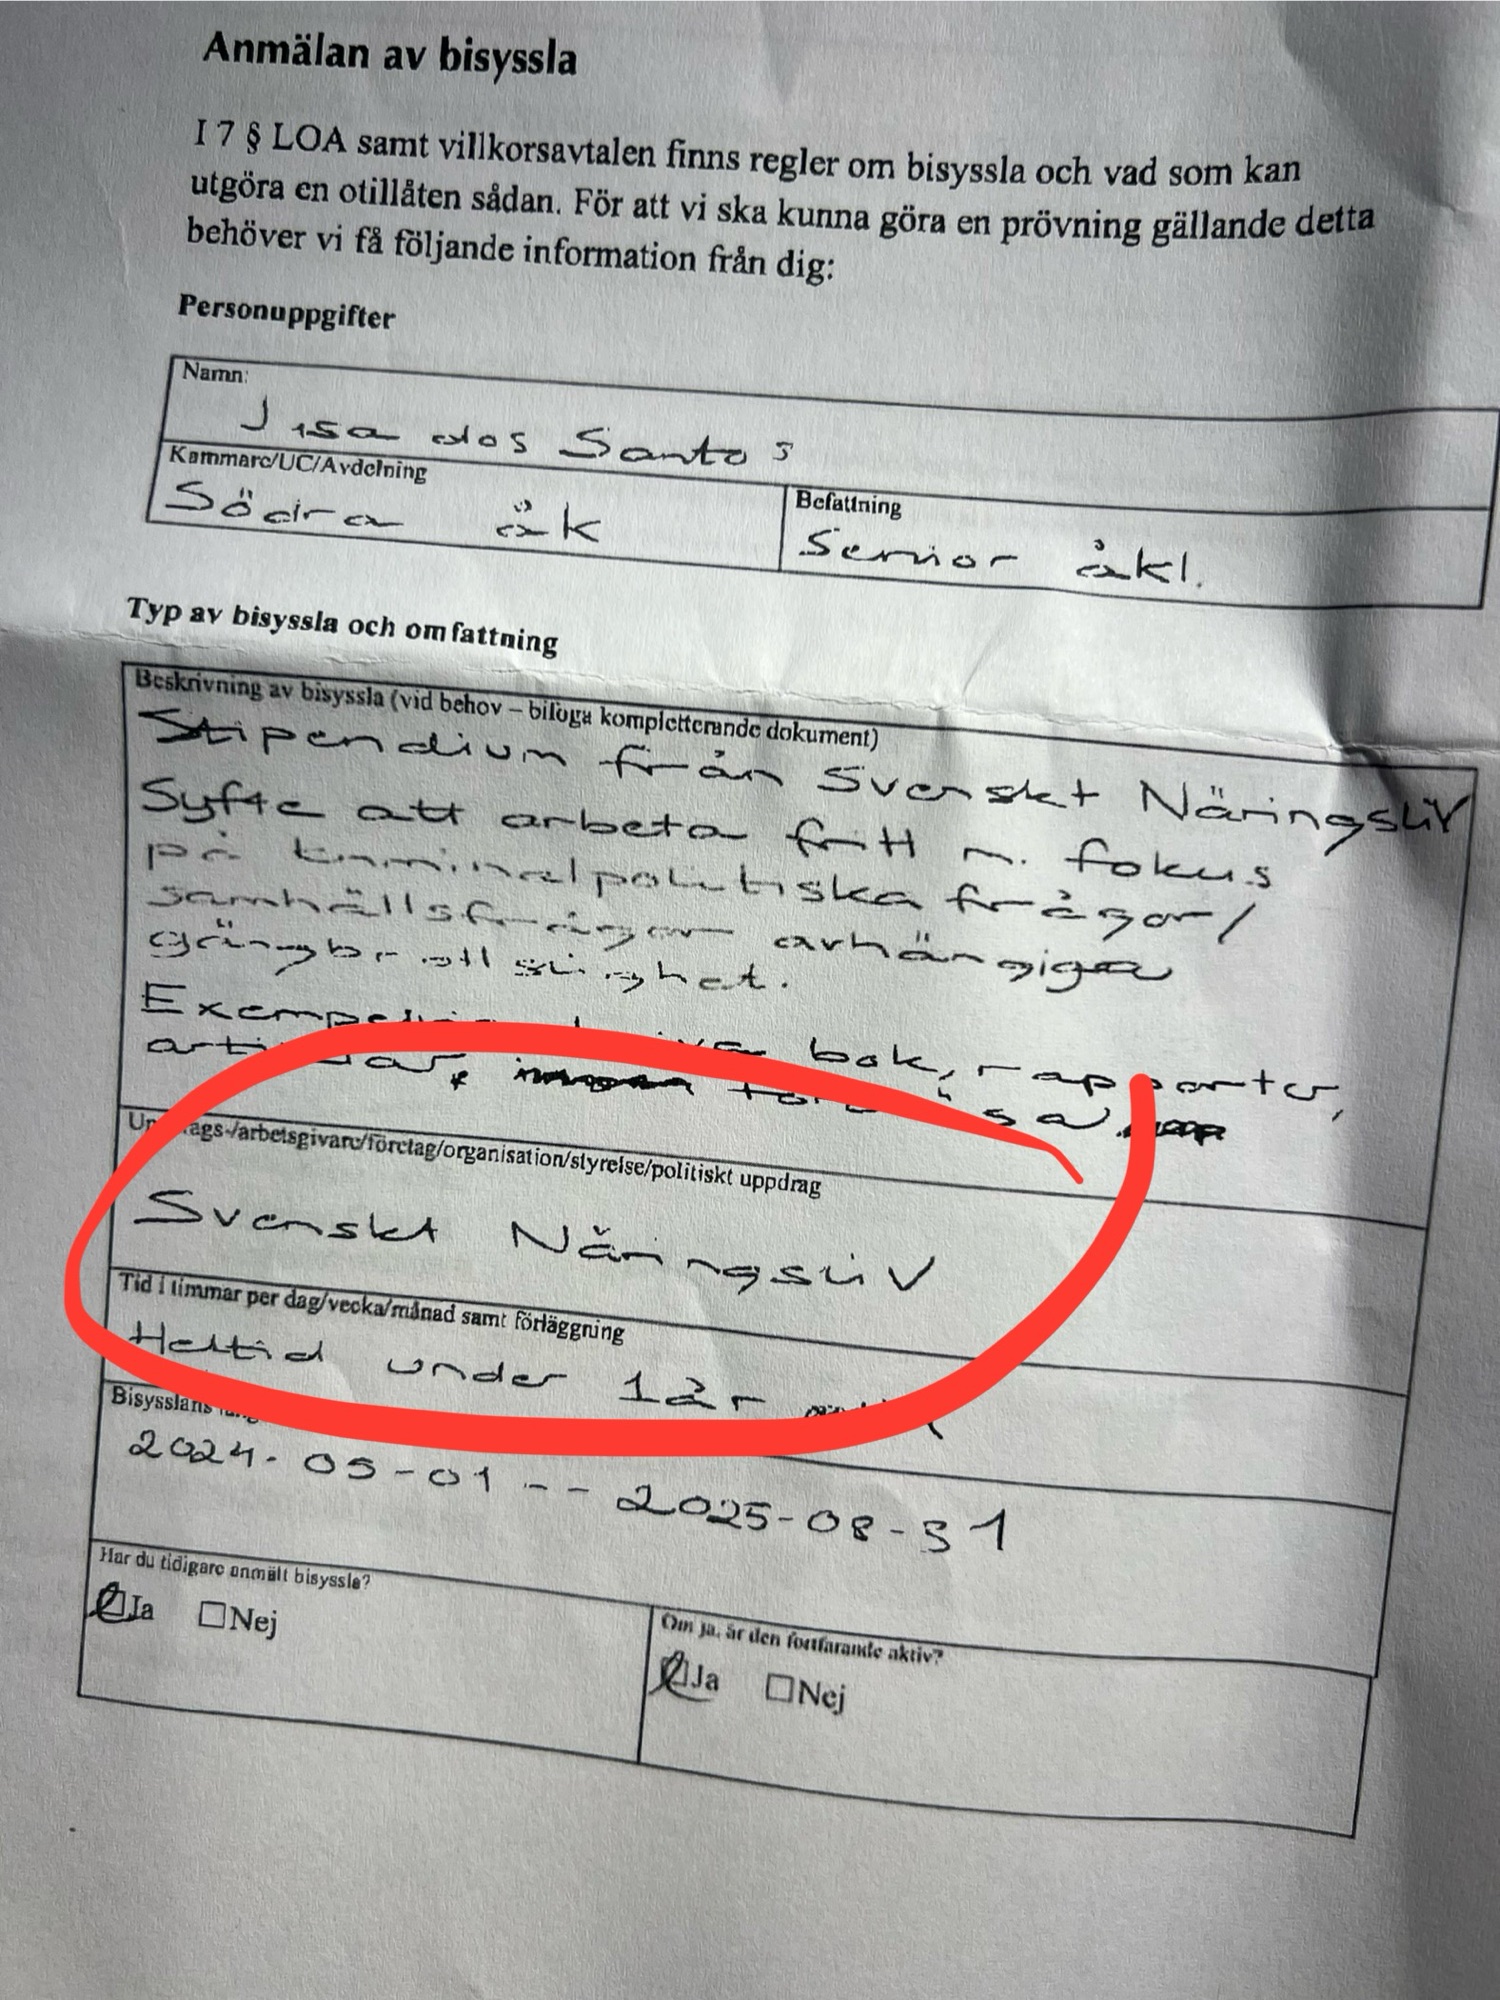 Anmälan av bisyssla
I 7 § LOA samt villkorsavtalen finns regler om bisyssla och vad som kan
utgöra en otillåten sådan. För att vi ska kunna göra en prövning gällande detta
behöver vi få följande information från dig:
Personuppgifter
Namn:
dos Santos
Kammare/UC/Avdelning
Södra åk
Befattning
Senior åkl.
Typ av bisyssla och omfattning
Beskrivning av bisyssla (vid behov – bifoga kompletterande dokument)
Stipendium från Svenskt Näringsliv
Syfte att arbeta fritt m. fokus
på kriminalpolitiska frågor/
samhällsfrågor avhängiga
gängbrottslighet.
bok, rapporter,
Uppdrags-/arbetsgivare/företag/organisation/styrelse/politiskt uppdrag
Svenskt Näringsliv
Tid i timmar per dag/vecka/månad samt förläggning
Heltid under 1 år
Bisysslans
2024-05-01 -- 2025-08-31
Har du tidigare anmält bisyssla?
Ja Nej
Om ja, är den fortfarande aktiv?
Ja Nej